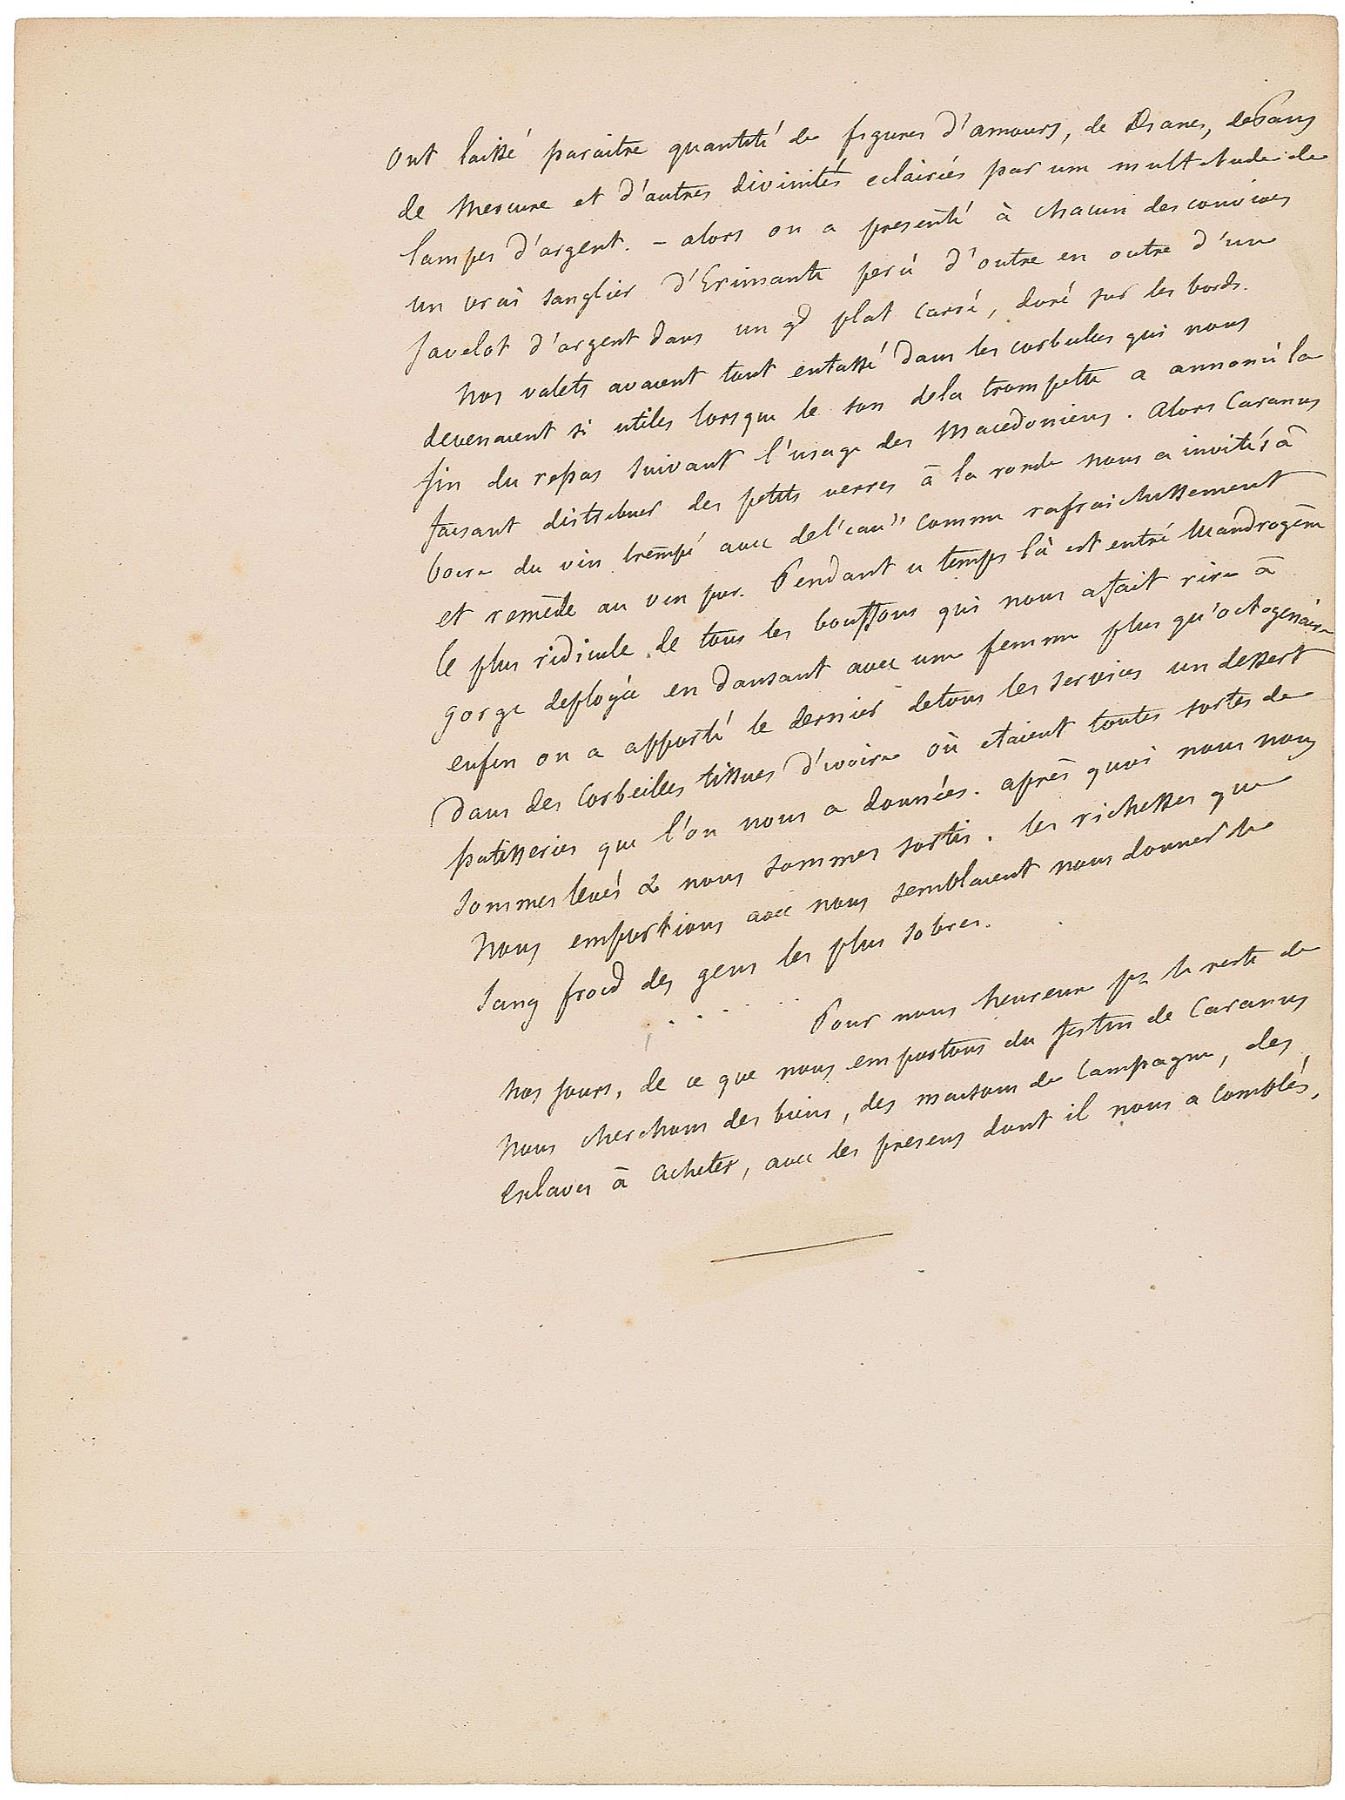 Ont laissé paraitre quantité de figures d'amours, de Dianes, de Pans
de Mercure et d'autres divinités eclairées par une multitude de
lampes d'argent. – alors on a presenté à chacun des convives
un vrai sanglier d'Erimante percé d'outre en outre d'une
javelot d'argent dans un gd plat carré, doré sur les bords.
Nos valets avaient tout entassé dans les corbeilles qui nous
devenaient si utiles lorsque le son de la trompette a annoncé la
fin du repas suivant l'usage des Macedoniens. Alors Caranus
faisant distribuer des petits verres à la ronde nous a invités à
boire du vin trempé avec de l'eau" comme rafraichissement
et remède au vin pur. Pendant ce temps là est entré Mandrogène
le plus ridicule de tous les bouffons qui nous a fait rire à
gorge deployée en dansant avec une femme plus qu'octogenaire
enfin on a apporté le dernier de tous les services un dessert
dans des corbeilles tissues d'ivoire où etaient toutes sortes de
patisseries que l'on nous a données. après quoi nous nous
sommes levés & nous sommes sortis. les richesses que
nous emportions avec nous semblaient nous donner le
sang froid des gens les plus sobres.
. . . . . Pour nous heureux pr le reste de
nos jours, de ce que nous emportons du festin de Caranus
nous cherchons des biens, des maisons de Campagne, des
Esclaves à acheter, avec les presens dont il nous a comblés.